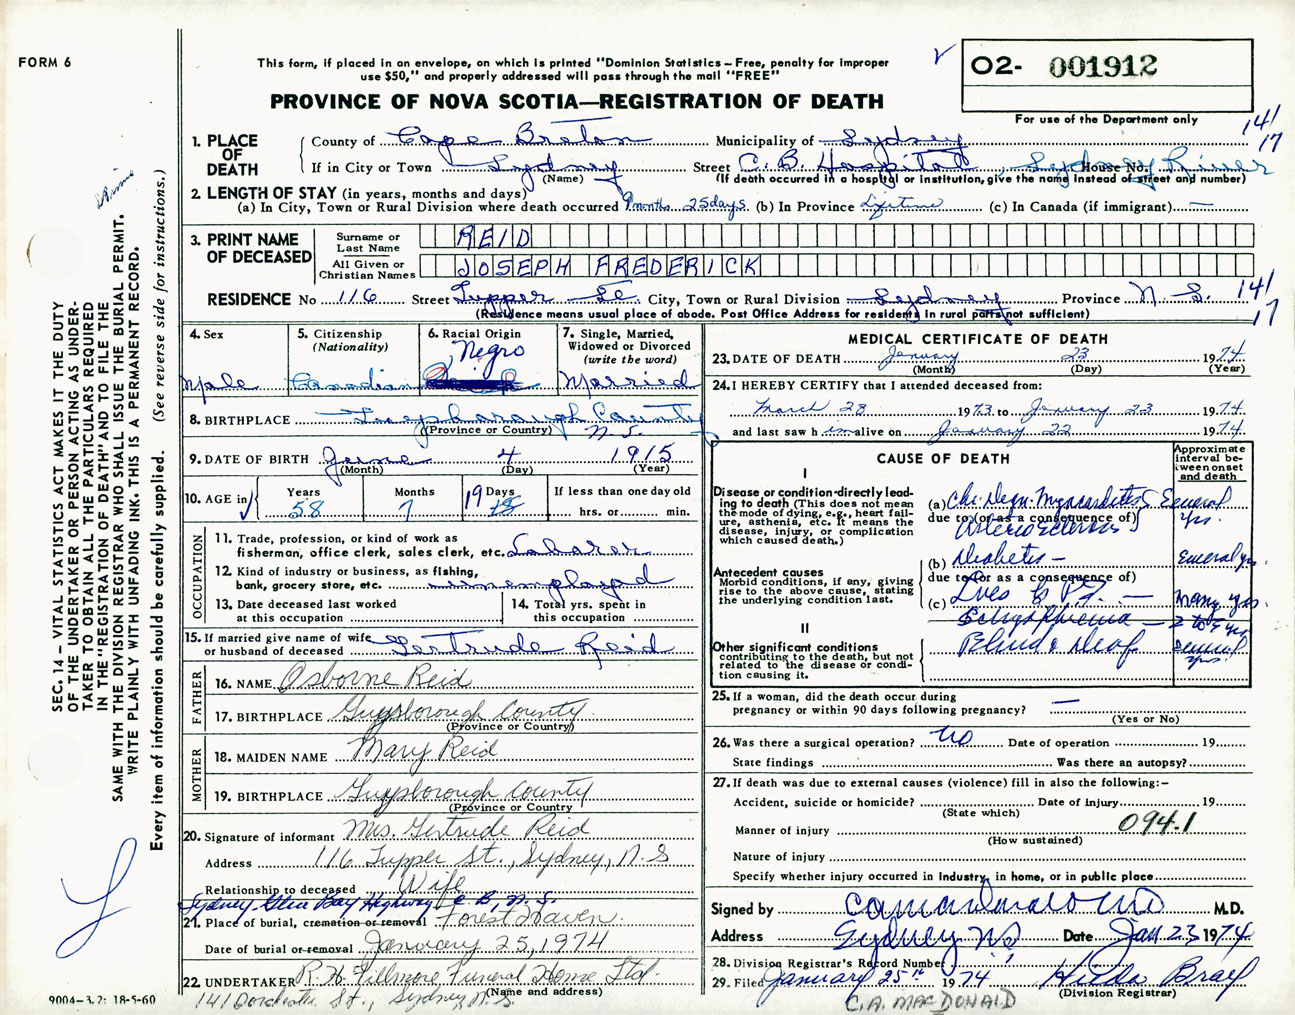 FORM 6
This form, if placed in an envelope, on which is printed "Dominion Statistics – Free, penalty for improper
use $50," and properly addressed will pass through the mail "FREE"
02- 001912
PROVINCE OF NOVA SCOTIA—REGISTRATION OF DEATH
For use of the Department only
141
17
1. PLACE OF DEATH
County of Cape Breton Municipality of Sydney
If in City or Town Sydney Street C. B. Hospital, Sydney River House No.
(Name) (If death occurred in a hospital or institution, give the name instead of street and number)
2. LENGTH OF STAY (in years, months and days)
(a) In City, Town or Rural Division where death occurred 9 months 25 days (b) In Province Lifetime (c) In Canada (if immigrant) —
3. PRINT NAME OF DECEASED
Surname or Last Name REID
All Given or Christian Names JOSEPH FREDERICK
RESIDENCE No 116 Street Tupper St. City, Town or Rural Division Sydney Province N.S.
141
17
(Residence means usual place of abode. Post Office Address for residents in rural parts not sufficient)
4. Sex
Male
5. Citizenship
(Nationality)
Canadian
6. Racial Origin
Negro
7. Single, Married,
Widowed or Divorced
(write the word)
Married
8. BIRTHPLACE Guysborough County
(Province or Country) N.S.
9. DATE OF BIRTH June 4 1915
(Month) (Day) (Year)
10. AGE in
Years 58
Months 7
Days 19
If less than one day old
hrs. or min.
OCCUPATION
11. Trade, profession, or kind of work as
fisherman, office clerk, sales clerk, etc. Laborer
12. Kind of industry or business, as fishing,
bank, grocery store, etc. unemployed
13. Date deceased last worked
at this occupation
14. Total yrs. spent in
this occupation
15. If married give name of wife
or husband of deceased Gertrude Reid
FATHER
16. NAME Osborne Reid
17. BIRTHPLACE Guysborough County
(Province or Country)
MOTHER
18. MAIDEN NAME Mary Reid
19. BIRTHPLACE Guysborough County
(Province or Country
20. Signature of informant Mrs. Gertrude Reid
Address 116 Tupper St., Sydney, N.S
Relationship to deceased Wife
Sydney Glace Bay Highway C.B., N.S.
21. Place of burial, cremation or removal Forest Haven
Date of burial or removal January 25, 1974
22. UNDERTAKER R.H. Fillmore Funeral Home Ltd.
(Name and address)
141 Dorchester St., Sydney N.S.
MEDICAL CERTIFICATE OF DEATH
23. DATE OF DEATH January 23 1974
(Month) (Day) (Year)
24. I HEREBY CERTIFY that I attended deceased from:
March 28 1973 to January 23 1974
and last saw h im alive on January 22 1974
CAUSE OF DEATH
Approximate interval between onset and death
I
Disease or condition directly leading to death (This does not mean the mode of dying, e.g., heart failure, asthenia, etc. It means the disease, injury, or complication which caused death.)
(a) Chr. Degn. Myocarditis & Several
due to (or as a consequence of) yrs.
Arteriosclerosis
(b) Diabetes — Several yrs.
due to (or as a consequence of)
Antecedent causes
Morbid conditions, if any, giving rise to the above cause, stating the underlying condition last.
(c) Lues — Many yrs.
Schizophrenia — yrs
II
Other significant conditions
contributing to the death, but not related to the disease or condition causing it.
Blind & Deaf Several yrs.
25. If a woman, did the death occur during
pregnancy or within 90 days following pregnancy? —
(Yes or No)
26. Was there a surgical operation? no Date of operation 19
State findings Was there an autopsy?
27. If death was due to external causes (violence) fill in also the following:–
Accident, suicide or homicide? Date of injury 19
(State which)
Manner of injury 094.1
(How sustained)
Nature of injury
Specify whether injury occurred in industry, in home, or in public place
Signed by M.D.
Address Sydney N.S. Date Jan 23 1974
28. Division Registrar's Record Number
29. Filed January 25th 1974 Hilda
(Division Registrar)
C.A. MACDONALD
SEC. 14 – VITAL STATISTICS ACT MAKES IT THE DUTY
OF THE UNDERTAKER OR PERSON ACTING AS UNDER-
TAKER TO OBTAIN ALL THE PARTICULARS REQUIRED
IN THE "REGISTRATION OF DEATH" AND TO FILE THE
SAME WITH THE DIVISION REGISTRAR WHO SHALL ISSUE THE BURIAL PERMIT.
WRITE PLAINLY WITH UNFADING INK. THIS IS A PERMANENT RECORD.
Every item of information should be carefully supplied. (See reverse side for instructions.)
9004-3.2: 18-5-60